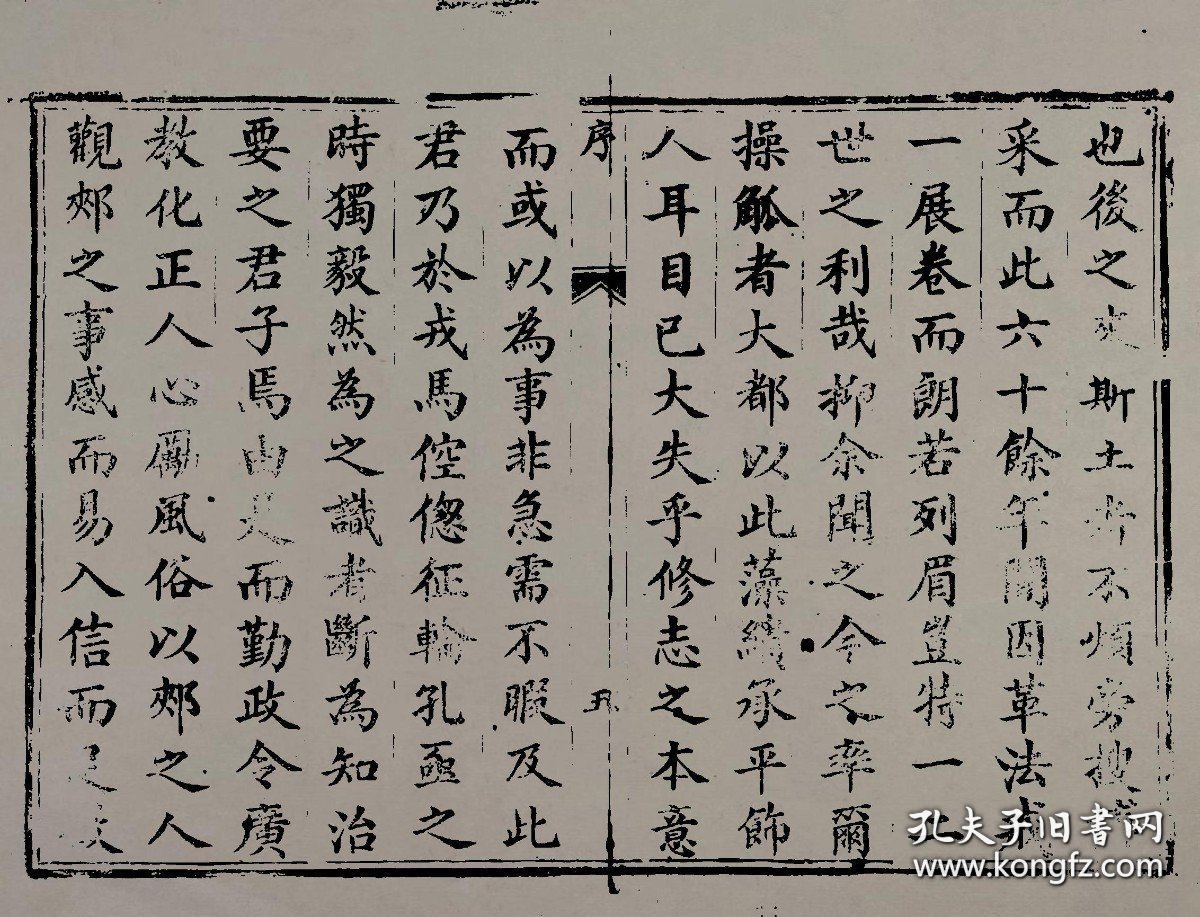 也後之吏斯土者不煩旁搜
采而此六十餘年間因革法戒
一展卷而朗若列眉豈特一
世之利哉抑余聞之今之率爾
操觚者大都以此藻繢承平飾
人耳目已大失乎修志之本意
序
五
而或以為事非急需不暇及此
君乃於戎馬倥傯征輸孔亟之
時獨毅然為之識者斷為知治
要之君子焉由是而勤政令廣
教化正人心勵風俗以郟之人
觀郟之事感而易入信而足
孔夫子旧书网
www.kongfz.com